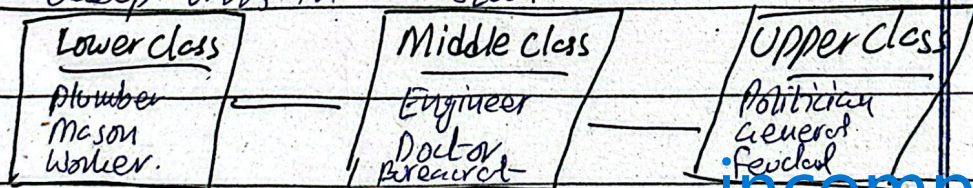 Lower class
Plumber
Mason
Worker.
Middle class
Engineer
Doctor
Upper class
Politician
General
feudal